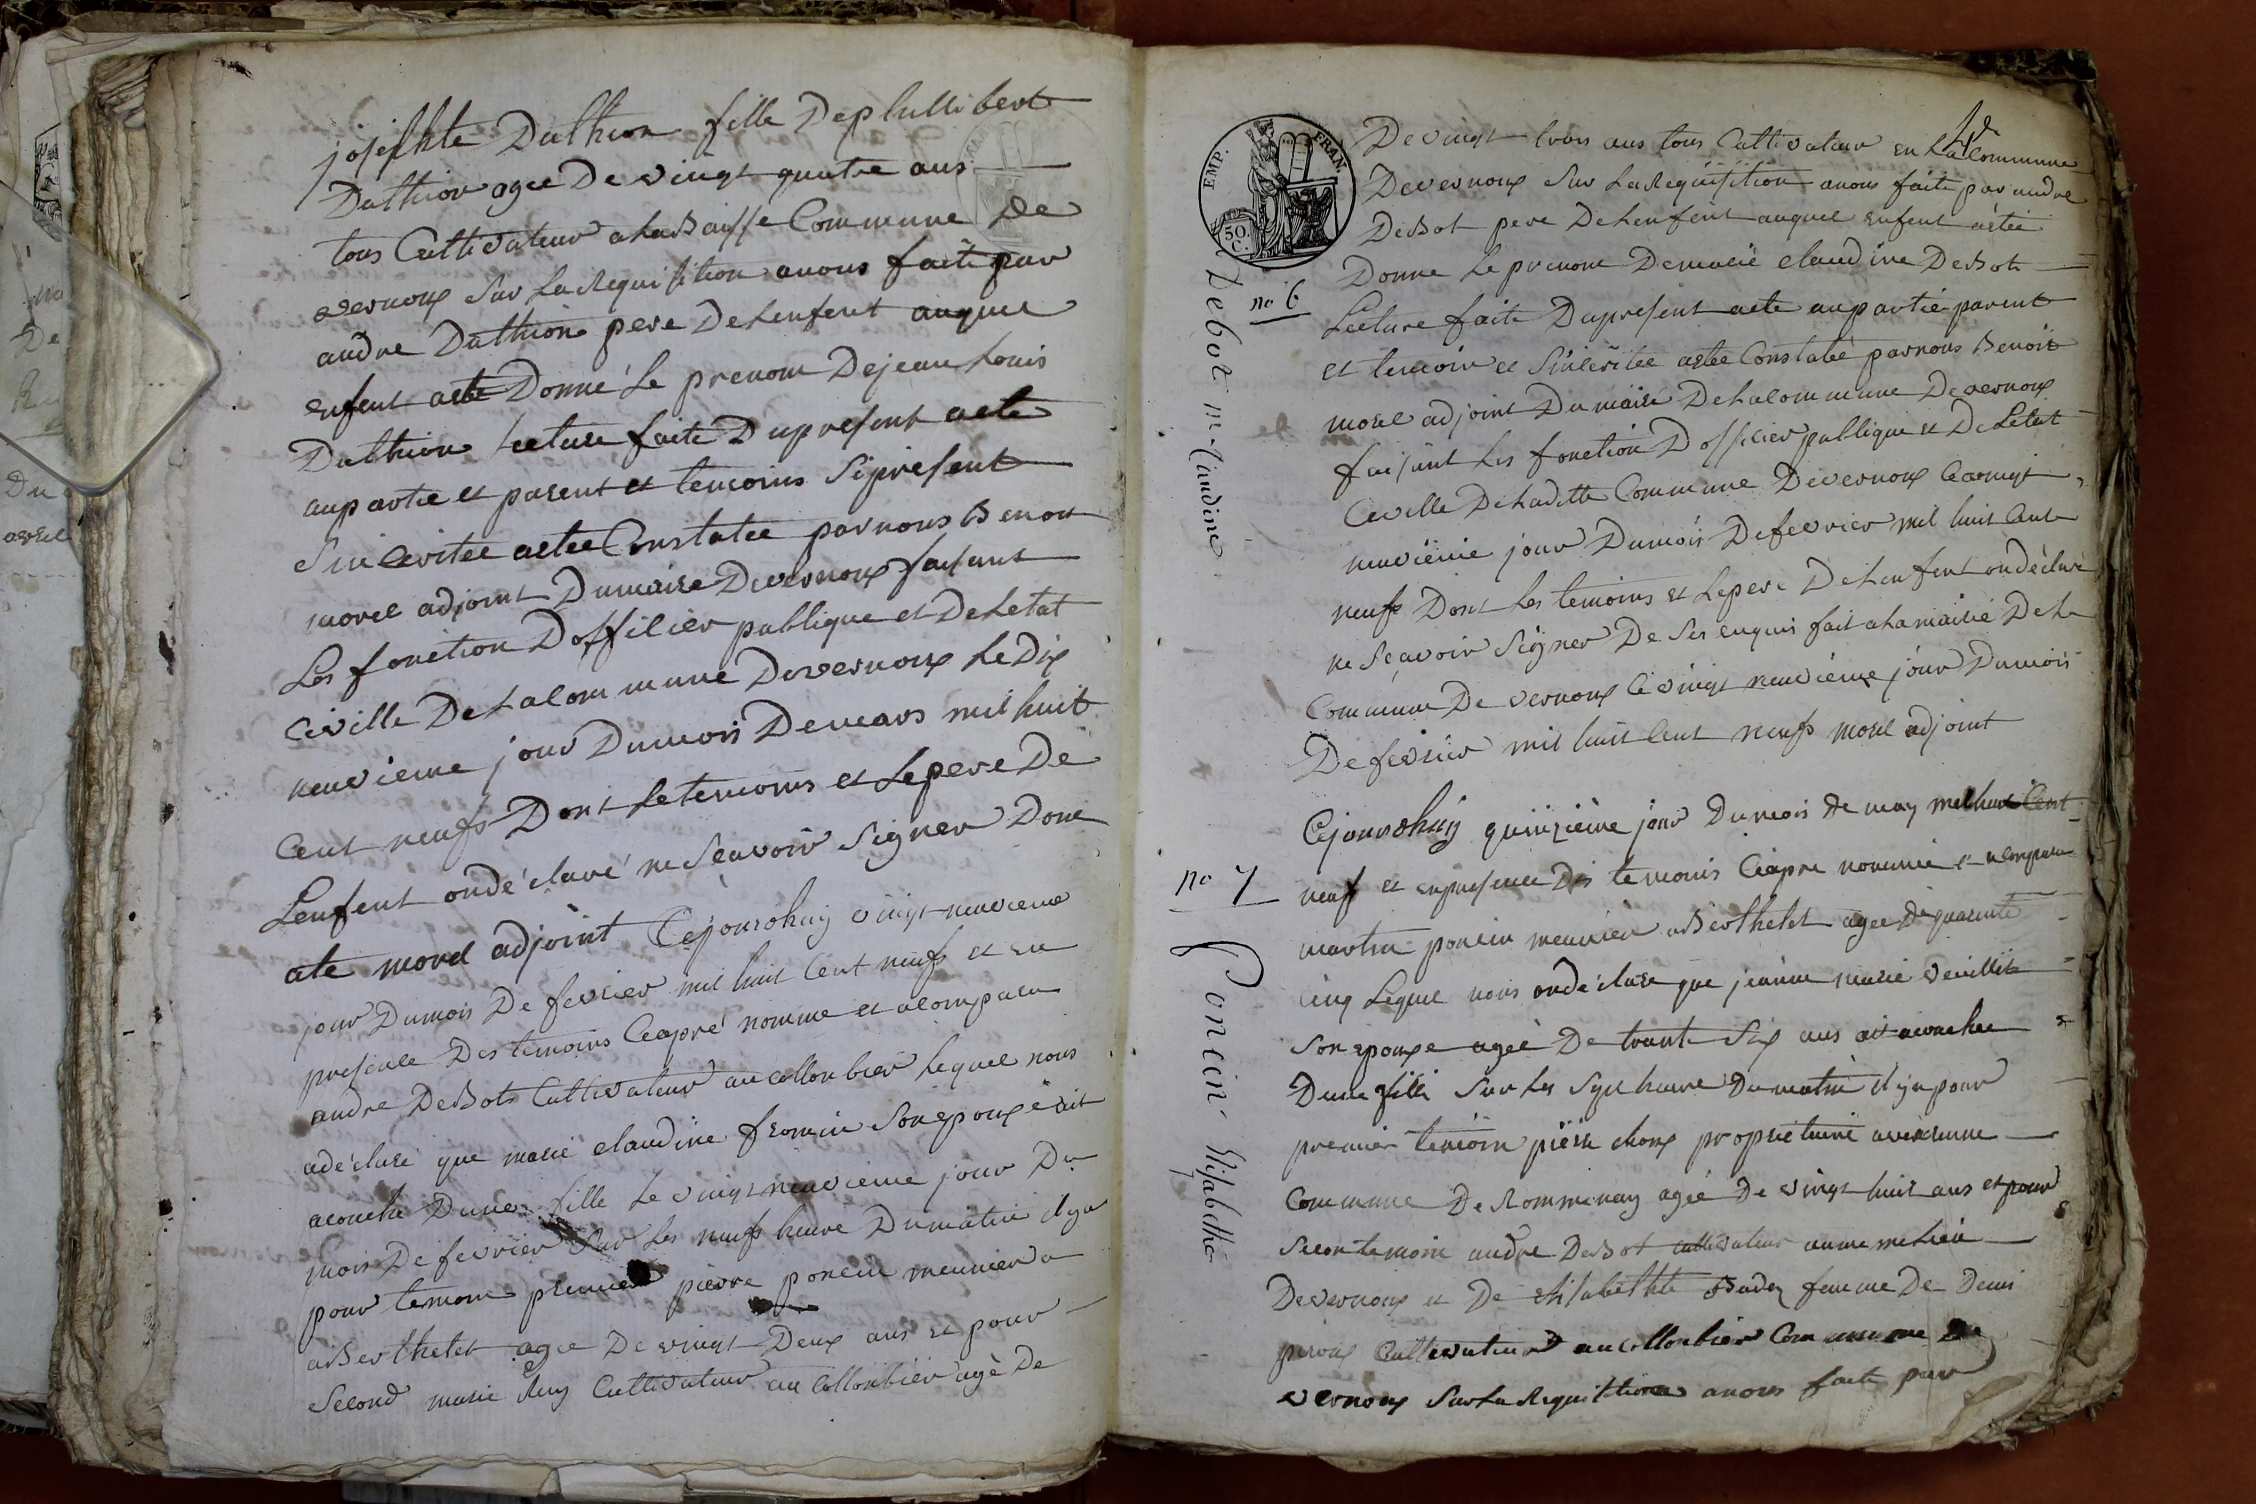 josephte Duthion fille Dephillibert
Duthion agee De vingt quatre ans
tous Cultivateur alabaisse Commune De
vernoux Sur La Requisition anous faite par
andre Duthion pere DeLenfent auquel
enfent aete Donné Le prenom Dejean Louis
Duthion lecture faite Dupresent acte
aupartie et parent et temoins Sipresent
Sinceritee aetee Constatee parnous Benoit
morel adjoint Dumaire Devernoux faisant
Les fonction Dofficier publique et DeLetat
Civille DeLacommune Devernoux Le Dix
neuvieme jour Dumois Demars mil huit
Cent neufs Dont Letemoins et Lepere De
Lenfent ondéclaré ne Scavoir Signer Donc
ate morel adjoint Cejourdhuy vingt neuvieme
jour Dumois De fevrier mil huit Cent neufs et en
presence Des temoins Ceapré nomme et acomparu
andre Debost Cultivateur aucollonbier Lequel nous
adéclaré que marie claudine fromin Sonepouxe ait
acouche Dune fille Le vingt neuvieme jour Du
mois De fevrier Sur Les neufs heure Dumatin ilya
pour temoin premier pierre poncin meunier a
aBerthelet agee De vingt Deux ans et pour
Second marie Rey Cultivateur au Collonbier agé De
EMP. FRAN.
50. C.
De vingt trois ans tous Cultivateur en La Commune
Devernoux Sur LaRequisition anous faite par andre
Debot pere DeLenfent auquel enfent aetée
Donne Le prenom Demarie claudine Debot
no 6
Debot m. Claudine
Lecture faite Dupresent acte aupartie parent
et temoin et Sincéritee aetee Constateé parnous Benoit
morel adjoint Dumaire DeLacommune Devernoux
faisant Les fonction Dofficier publique et DeLetat
Civille DeLaditte Commune Devernoux Cevingt
neuvieme jour Dumois Defevrier mil huit Cent
neufs Dont Les temoins et Lepere DeLenfent ondéclaré
ne Scavoir Signer De Ses enquis fait alamairie DeLa
Commune De vernoux Cé vingt neuviéme jour Dumois
De fevrier mil huit Cent neufs morel adjoint
Cejourdhuy quinzième jour Dumois de may mil huit Cent
no 7
Poncin Elisabethe
neuf et enpresence Des temoins Ciapre nommé et acomparu
martin poncin meunier aBerthelet agee De quarente
cinq Lequel nous ondéclaré que jeanne marie
Sonepouxe agée De trante Six ans ait acouchee
Dune fille Sur Les Sept heure Dumatin il ya pour
premier temoin piérre choux proprietaire
Commune De Rommenay ageé De vingt huit ans et pour
Secon temoin andre Debost Cultivateur
Devernoux et De elisabethte Buden femme De Denis
peroux Cultivateur aucollonbier Commune De
vernoux Sur La Requisition anous faite par